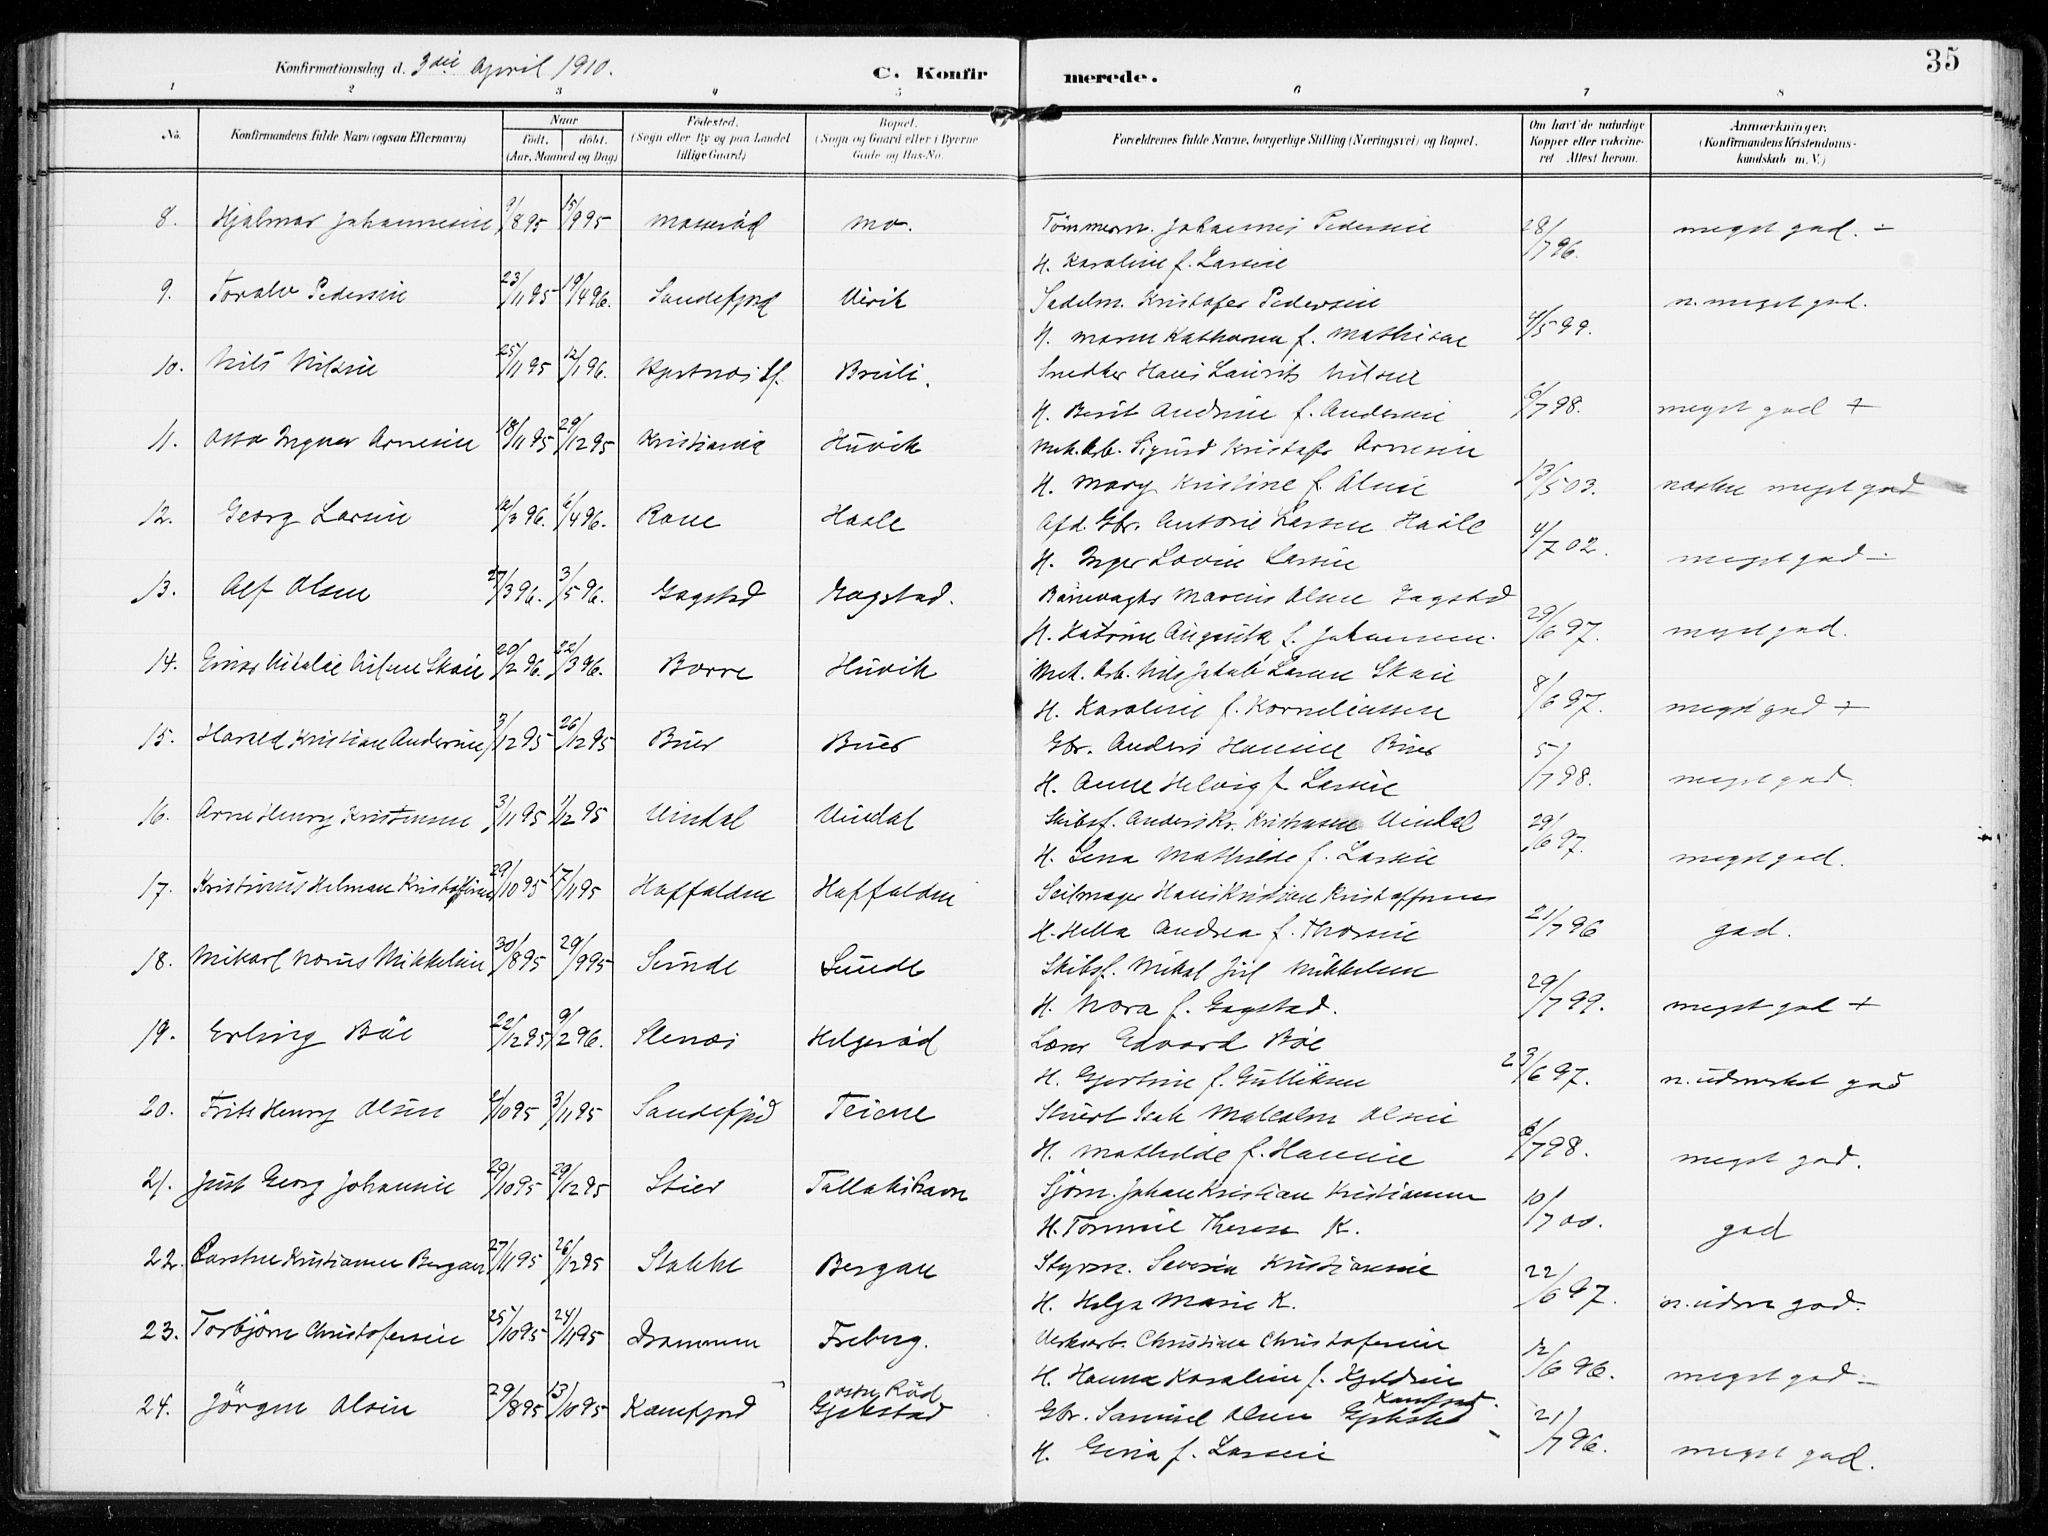 Konfirmationsdag d. 3die April 1910. C. Konfirmerede. 35
1 2 3 4 5 6 7 8
No. Konfirmandens fulde Navn (ogsaa Efternavn) Naar Født. døbt. (Aar, Maaned og Dag) Fødested. (Sogn eller By og paa Landet tillige Gaard) Bopæl. (Sogn og Gaard eller i Byerne Gade og Hus-No. Forældrenes fulde Navne, borgerlige Stilling (Næringsvei) og Bopæl. Om havt de naturlige Kopper eller vaccineret Attest herom. Anmærkninger. (Konfirmandens Kristendomskundskab m. V.)
8. Hjalmar Johannesen 9/8 95 15/9 95 Masseröd Mo. Tömmerm. Johannes Pedersen 28/7 96. meget god. -
H. Karoline f. Larsen
9. Toralv Pedersen 23/11 95 19/4 96. Sandefjord Virik Sadelm. Kristofer Pedersen n. meget god.
H. Maren Kathrina f. Mathisen 4/5 99.
10. Nils Nilsen 25/11 95 12/1 96. Breili. Snedker Hans Laurits Nilsen
H. Berit Andrine f. Andersen 6/7 98. meget god +
11. Otto Ingvar Arnesen 18/11 95 29/12 95 Kristiania Huvik Mek. Arb. Sigurd Kristofer Arnesen
H. Mary Kristine f. Olsen 13/5 03. næsten meget god
12. Georg Larsen 12/3 96. 6/4 96. Rane Hasle Afd. Gbr. Antoni Larsen Hasle 4/7 02.
H. Inger Lovise Larsen meget god -
13. Alf Olsen 27/3 96. 3/5 96. Gogstad Gogstad. Banevagts Marius Olsen Gogstad
H. Katrine Augusta f. Johannsen. 29/6 97. meget god.
14. Einar Nilsen Skaie 20/2 96. 22/3 96. Borre Huvik Mek. Arb. Nils Jakob Larsen Skaie
H. Karoline f. Korneliussen 8/6 97. meget god +
15. Harald Kristian Andersen 3/12 95 26/12 95 Buer Buer Gbr. Anders Hansen Buer 5/7 98.
H. Anne Helvig f. Larsen meget god.
16. Arne Henry Kristensen 3/11 95 1/12 95 Vindal Vindal Skibsf. Anders Kr. Kristensen Vindal 29/6 97.
H. Lena Mathilde f. Larsen meget god.
17. Kristinus Hilman Kristoffersen 29/10 95 17/11 95 Haffalden Haffalden Seilmager Hans Kristian Kristoffersen
H. Hella Andrea f. Thorsen 21/7 96 god.
18. Mikael Norus Mikkelsen 30/8 95 29/9 95 Sunde Sunde Skibsf. Mikal Juel Mikkelsen
H. Nora f. Gogstad. 29/7 99. meget god +
19. Erling Böe 22/12 95 9/2 96. Stenæs Helgeröd Lærer Edvard Böe
H. Gjertine f. Gulliksen 23/6 97. n. udmerket god
20. Frits Henry Olsen 2/10 95 3/11 95 Sandefjord Teiene Stuert Isak Malcolm Olsen
H. Mathilde f. Hansen 6/7 98. meget god.
21. Just Georg Johansen 29/10 95 29/12 95 Stier Tallakshavn Sjöm. Johan Kristian Kristiansen 10/7 00.
H. Tomine Therese K. god
22. Carsten Kristiansen Bergan 27/11 95 26/12 95 Stokke Bergan Styrm. Severin Kristiansen 22/6 97.
H. Helga Marie K. n. udm god.
23. Torbjörn Christofersen 25/10 95 24/11 95 Drammen Freberg. Verksarb. Christian Christofersen
H. Hanna Karoline f. Kjeldsen 12/6 96. meget god -
24. Jörgen Olsen 29/8 95 13/10 95 Kamfjord östre Röd Gjekstad Gbr. Samuel Olsen Gjekstad Kamfjord. 21/7 96.
H. Gina f. Larsen meget god.